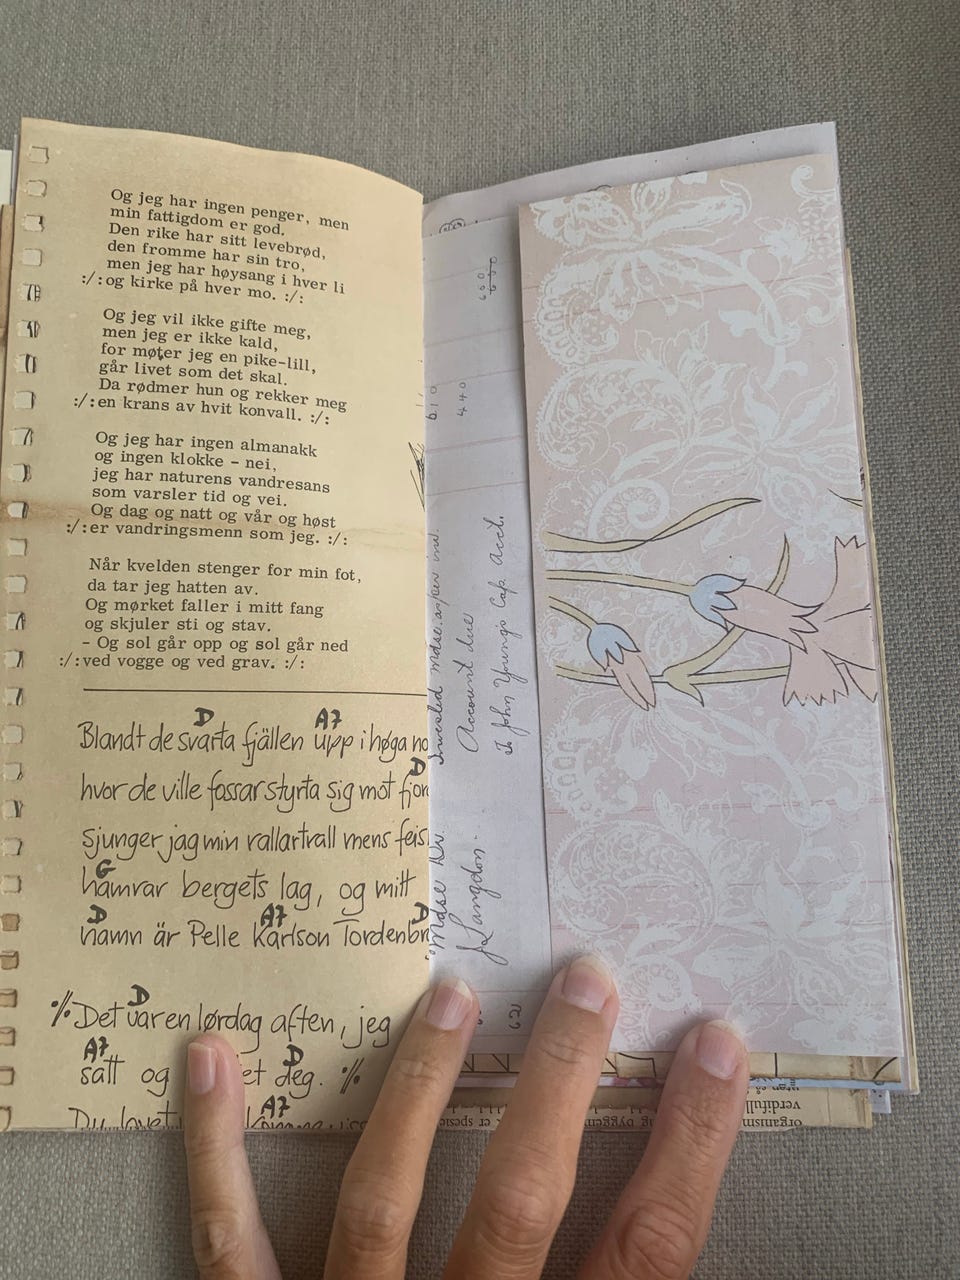 Og jeg har ingen penger, men
min fattigdom er god.
Den rike har sitt levebrød,
den fromme har sin tro,
men jeg har høysang i hver li
:/:og kirke på hver mo. :/:
Og jeg vil ikke gifte meg,
men jeg er ikke kald,
for møter jeg en pike-lill,
går livet som det skal.
Da rødmer hun og rekker meg
:/:en krans av hvit konvall. :/:
Og jeg har ingen almanakk
og ingen klokke - nei,
jeg har naturens vandresans
som varsler tid og vei.
Og dag og natt og vår og høst
:/:er vandringsmenn som jeg. :/:
Når kvelden stenger for min fot,
da tar jeg hatten av.
Og mørket faller i mitt fang
og skjuler sti og stav.
- Og sol går opp og sol går ned
:/:ved vogge og ved grav. :/:
D A7
Blandt de svarta fjällen upp i høga no
D
hvor de ville fossar styrta sig mot fjor
sjunger jag min rallartrall mens feis
G
hamrar bergets lag, og mitt
D A7 D
namn är Pelle Karlson Tordenbr
D
% Det var en lørdag aften, jeg
A7 D
satt og et deg. %
A7
Du lovet
600
600
610
440
Invested mdse. as per ind.
Account due
to John Young's Cap. Acct.
Mdse Dr.
J. Langdon
organism
verdifull
er spes